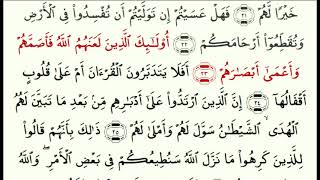 خَيْرًا لَّهُمْ ٢١ فَهَلْ عَسَيْتُمْ إِن تَوَلَّيْتُمْ أَن تُفْسِدُوا۟ فِى ٱلْأَرْضِ
وَتُقَطِّعُوٓا۟ أَرْحَامَكُمْ ٢٢ أُو۟لَـٰٓئِكَ ٱلَّذِينَ لَعَنَهُمُ ٱللَّهُ فَأَصَمَّهُمْ
وَأَعْمَىٰٓ أَبْصَـٰرَهُمْ ٢٣ أَفَلَا يَتَدَبَّرُونَ ٱلْقُرْءَانَ أَمْ عَلَىٰ قُلُوبٍ
أَقْفَالُهَآ ٢٤ إِنَّ ٱلَّذِينَ ٱرْتَدُّوا۟ عَلَىٰٓ أَدْبَـٰرِهِم مِّنۢ بَعْدِ مَا تَبَيَّنَ لَهُمُ
ٱلْهُدَى ٱلشَّيْطَـٰنُ سَوَّلَ لَهُمْ وَأَمْلَىٰ لَهُمْ ٢٥ ذَٰلِكَ بِأَنَّهُمْ قَالُوا۟
لِلَّذِينَ كَرِهُوا۟ مَا نَزَّلَ ٱللَّهُ سَنُطِيعُكُمْ فِى بَعْضِ ٱلْأَمْرِ وَٱللَّهُ